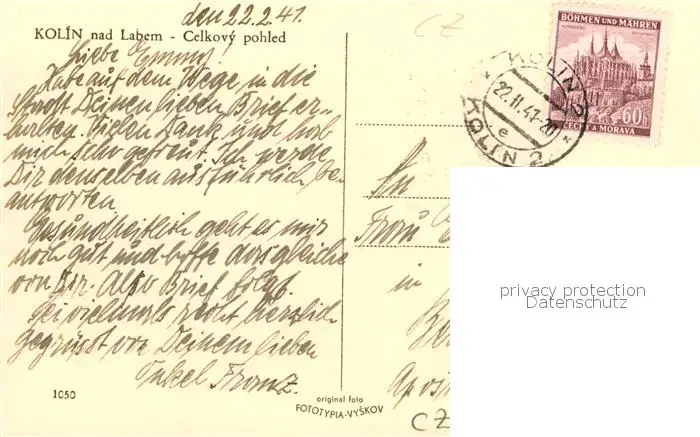 den 22.2.41.
KOLÍN nad Labem - Celkový pohled
Liebe Emmy!
Habe auf dem Wege in die
Stadt Deinen lieben Brief er-
halten. Vielen Dank und hab
mich sehr gefreut. Ich werde
Dir denselben ausführlich be-
antworten
Gesundheitlich geht es mir
noch gut und hoffe dasgleiche
von Dir. Also Brief folgt
Sei vielmals recht herzlich
gegrüsst von Deinem lieben
Onkel Franz.
1050
original foto
FOTOTYPIA-VYŠKOV
CZ
BÖHMEN UND MÄHREN
60h
ČECHY A MORAVA
KOLÍN 2
22.II.41-20
e
KOLÍN 2
An
Frau
in
privacy protection
Datenschutz
CZ